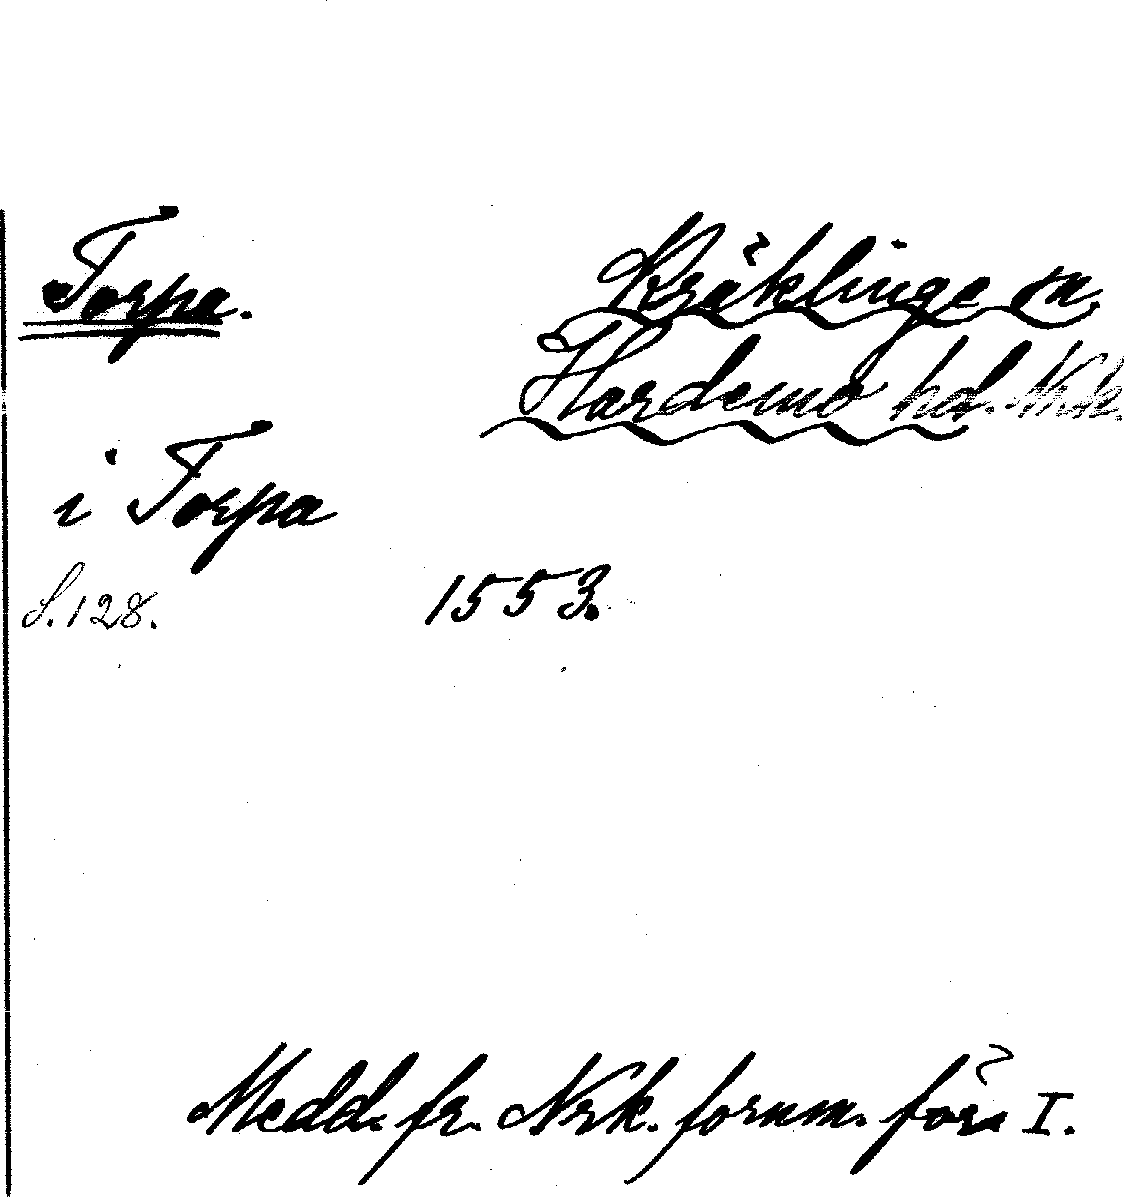 Torpa.
Kräklinge sn.
Hardemo hd. Nrk.
i Torpa
S. 128.
1553.
Medd. fr. Nrk. fornm. för. I.